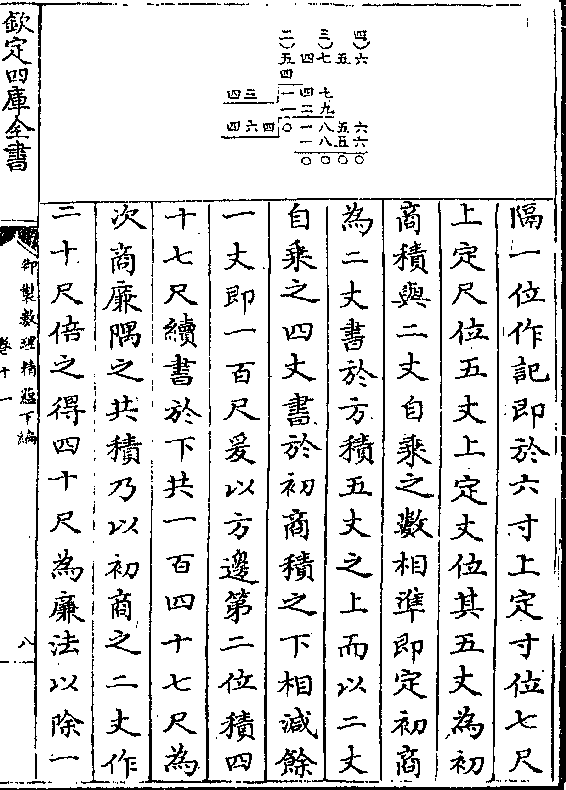 二 三 四
五四七五六
四
四三 一四七
一二九
四六四 〇一八五六
一八五六
〇〇〇〇
隔一位作記即於六寸上定寸位七尺
上定尺位五丈上定丈位其五丈為初
商積與二丈自乘之數相準即定初商
為二丈書於方積五丈之上而以二丈
自乘之四丈書於初商積之下相減餘
一丈即一百尺爰以方邊第二位積四
十七尺續書於下共一百四十七尺為
次商廉隅之共積乃以初商之二丈作
二十尺倍之得四十尺為廉法以除一
欽定四庫全書
御製數理精蘊下編
卷十一
八